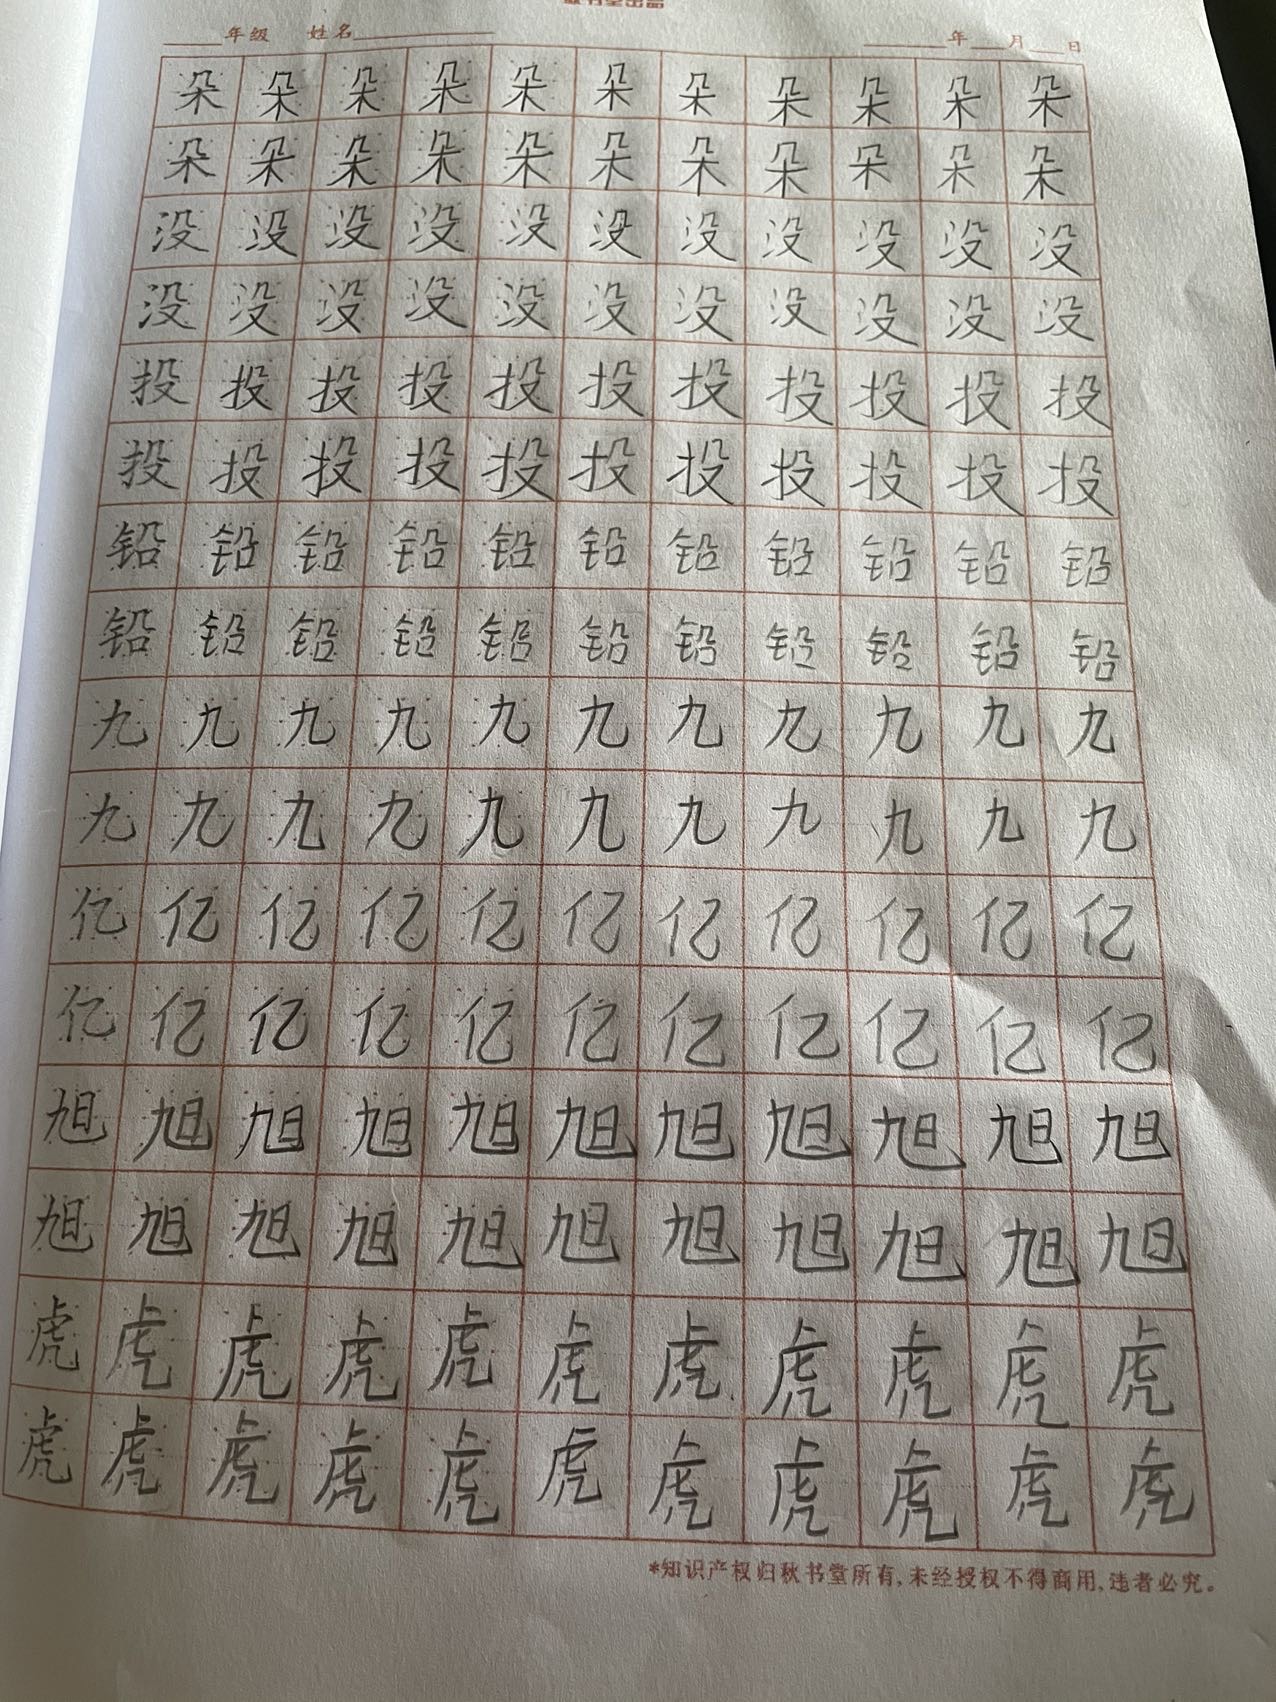 年级 姓名 年 月 日
朵朵朵朵朵朵朵朵朵朵朵
朵朵朵朵朵朵朵朵朵朵朵
没没没没没没没没没没没
没没没没没没没没没没没
投投投投投投投投投投投
投投投投投投投投投投投
铅铅铅铅铅铅铅铅铅铅铅
铅铅铅铅铅铅铅铅铅铅铅
九九九九九九九九九九九
九九九九九九九九九九九
亿亿亿亿亿亿亿亿亿亿亿
亿亿亿亿亿亿亿亿亿亿亿
旭旭旭旭旭旭旭旭旭旭旭
旭旭旭旭旭旭旭旭旭旭旭
虎虎虎虎虎虎虎虎虎虎虎
虎虎虎虎虎虎虎虎虎虎虎
*知识产权归秋书堂所有,未经授权不得商用,违者必究。